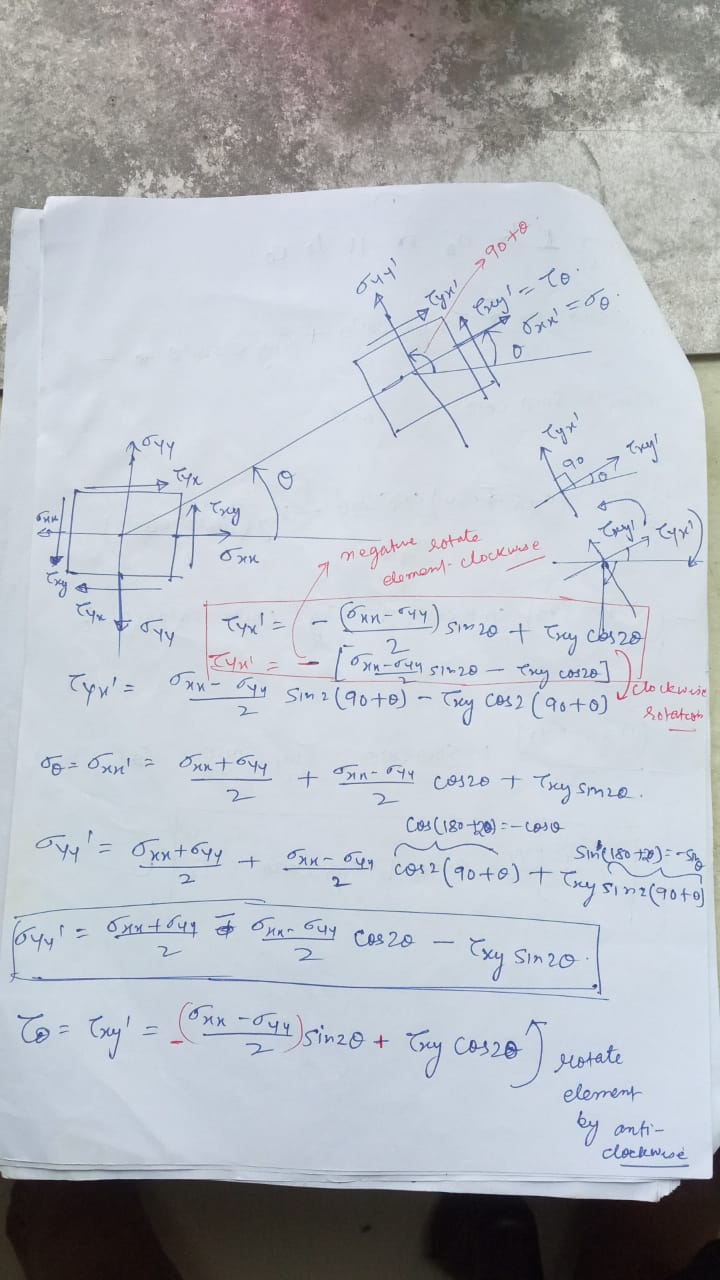 90+θ
σyy'
τyx'
τxy' = τθ.
σxx' = σθ.
θ
σyy
τyx
θ
τyx'
90
θ
τxy'
σxx
τxy
σxx
τxy'
τyx'
τxy
τyx
σyy
negative rotate
element clockwise
τyx' = - (σxx-σyy)/2 sin2θ + τxy cos2θ
τyx' = - [σxx-σyy/2 sin2θ - τxy cos2θ]
τyx' = σxx-σyy/2 sin2(90+θ) - τxy cos2(90+θ)
clockwise
rotation
σθ = σxx' = σxx+σyy/2 + σxx-σyy/2 cos2θ + τxy sin2θ.
cos(180+2θ)=-cosθ
sin(180+2θ)=-sinθ
σyy' = σxx+σyy/2 + σxx-σyy/2 cos2(90+θ) + τxy sin2(90+θ)
σyy' = σxx+σyy/2 - σxx-σyy/2 cos2θ - τxy sin2θ.
τθ = τxy' = -(σxx-σyy/2) sin2θ + τxy cos2θ
rotate
element
by anti-
clockwise